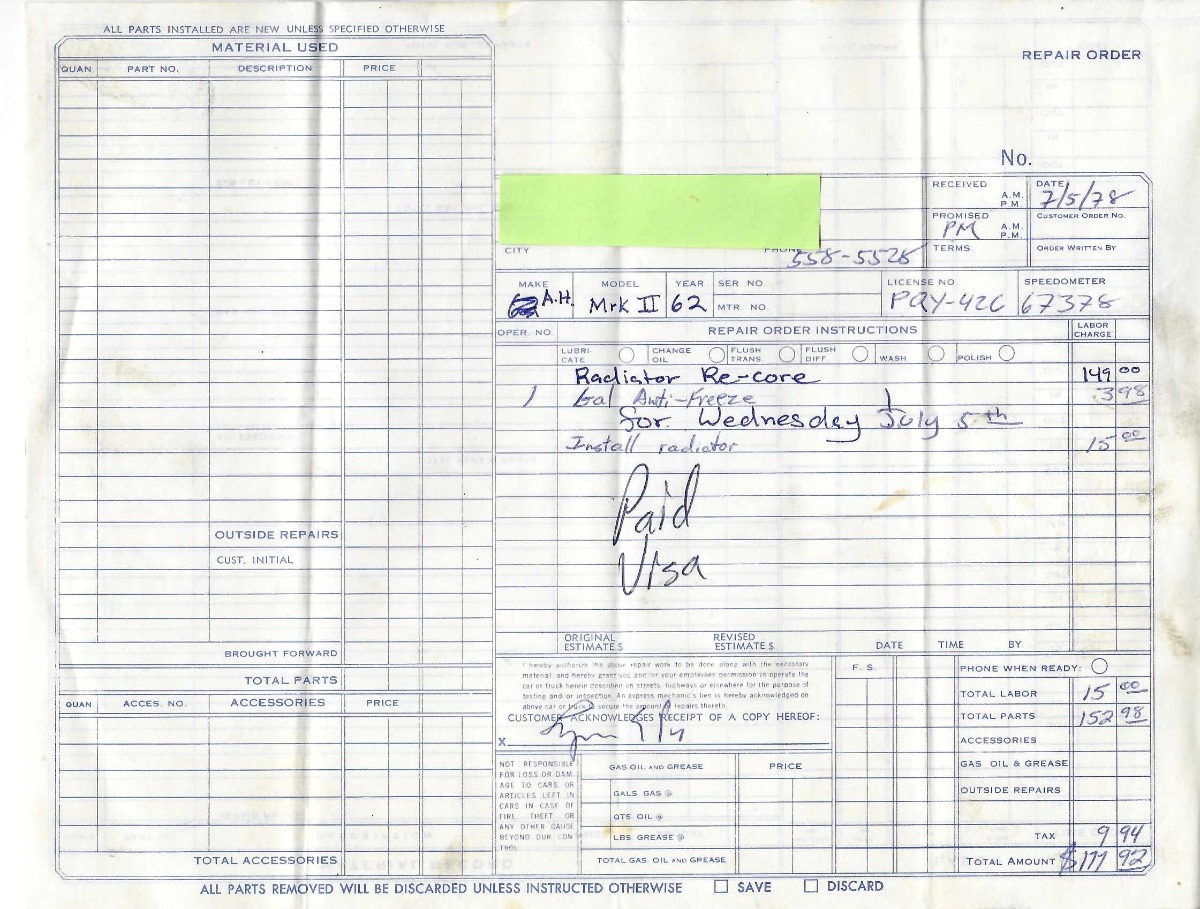 ALL PARTS INSTALLED ARE NEW UNLESS SPECIFIED OTHERWISE
MATERIAL USED
QUAN. PART NO. DESCRIPTION PRICE
OUTSIDE REPAIRS
CUST. INITIAL
BROUGHT FORWARD
TOTAL PARTS
QUAN ACCES. NO. ACCESSORIES PRICE
TOTAL ACCESSORIES
REPAIR ORDER
No.
RECEIVED A.M. P.M. DATE 7/5/78
PROMISED PM A.M. P.M. CUSTOMER ORDER NO.
CITY PHONE 558-5528 TERMS ORDER WRITTEN BY
MAKE MODEL YEAR SER. NO. LICENSE NO SPEEDOMETER
A.H. Mrk II 62 MTR. NO. PQY-426 67378
OPER. NO. REPAIR ORDER INSTRUCTIONS LABOR CHARGE
LUBRI-CATE CHANGE OIL FLUSH TRANS. FLUSH DIFF WASH POLISH
Radiator Re-core 149 00
1 Gal Anti-Freeze 3 98
for Wednesday July 5th
Install radiator 15 00
Paid
Visa
ORIGINAL ESTIMATE $ REVISED ESTIMATE $ DATE TIME BY
I hereby authorize the above repair work to be done along with the necessary
material, and hereby grant you and/or your employees permission to operate the
car or truck herein described on streets, highways or elsewhere for the purpose of
testing and/or inspection. An express mechanic's lien is hereby acknowledged on
above car or truck to secure the amount of repairs thereto.
CUSTOMER ACKNOWLEDGES RECEIPT OF A COPY HEREOF:
X
F. S. PHONE WHEN READY:
TOTAL LABOR 15 00
TOTAL PARTS 152 98
ACCESSORIES
GAS OIL & GREASE
OUTSIDE REPAIRS
TAX 9 94
TOTAL AMOUNT $177 92
NOT RESPONSIBLE
FOR LOSS OR DAM
AGE TO CARS OR
ARTICLES LEFT IN
CARS IN CASE OF
FIRE THEFT OR
ANY OTHER CAUSE
BEYOND OUR CON
TROL
GAS OIL AND GREASE PRICE
GALS GAS @
QTS OIL @
LBS GREASE @
TOTAL GAS OIL AND GREASE
ALL PARTS REMOVED WILL BE DISCARDED UNLESS INSTRUCTED OTHERWISE SAVE DISCARD